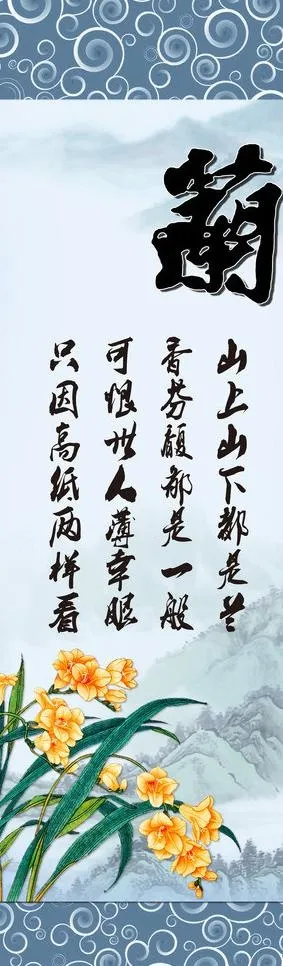 蘭
山上山下都是兰
香芬馥郁是一般
可恨世人薄幸眼
只因高纸两样看